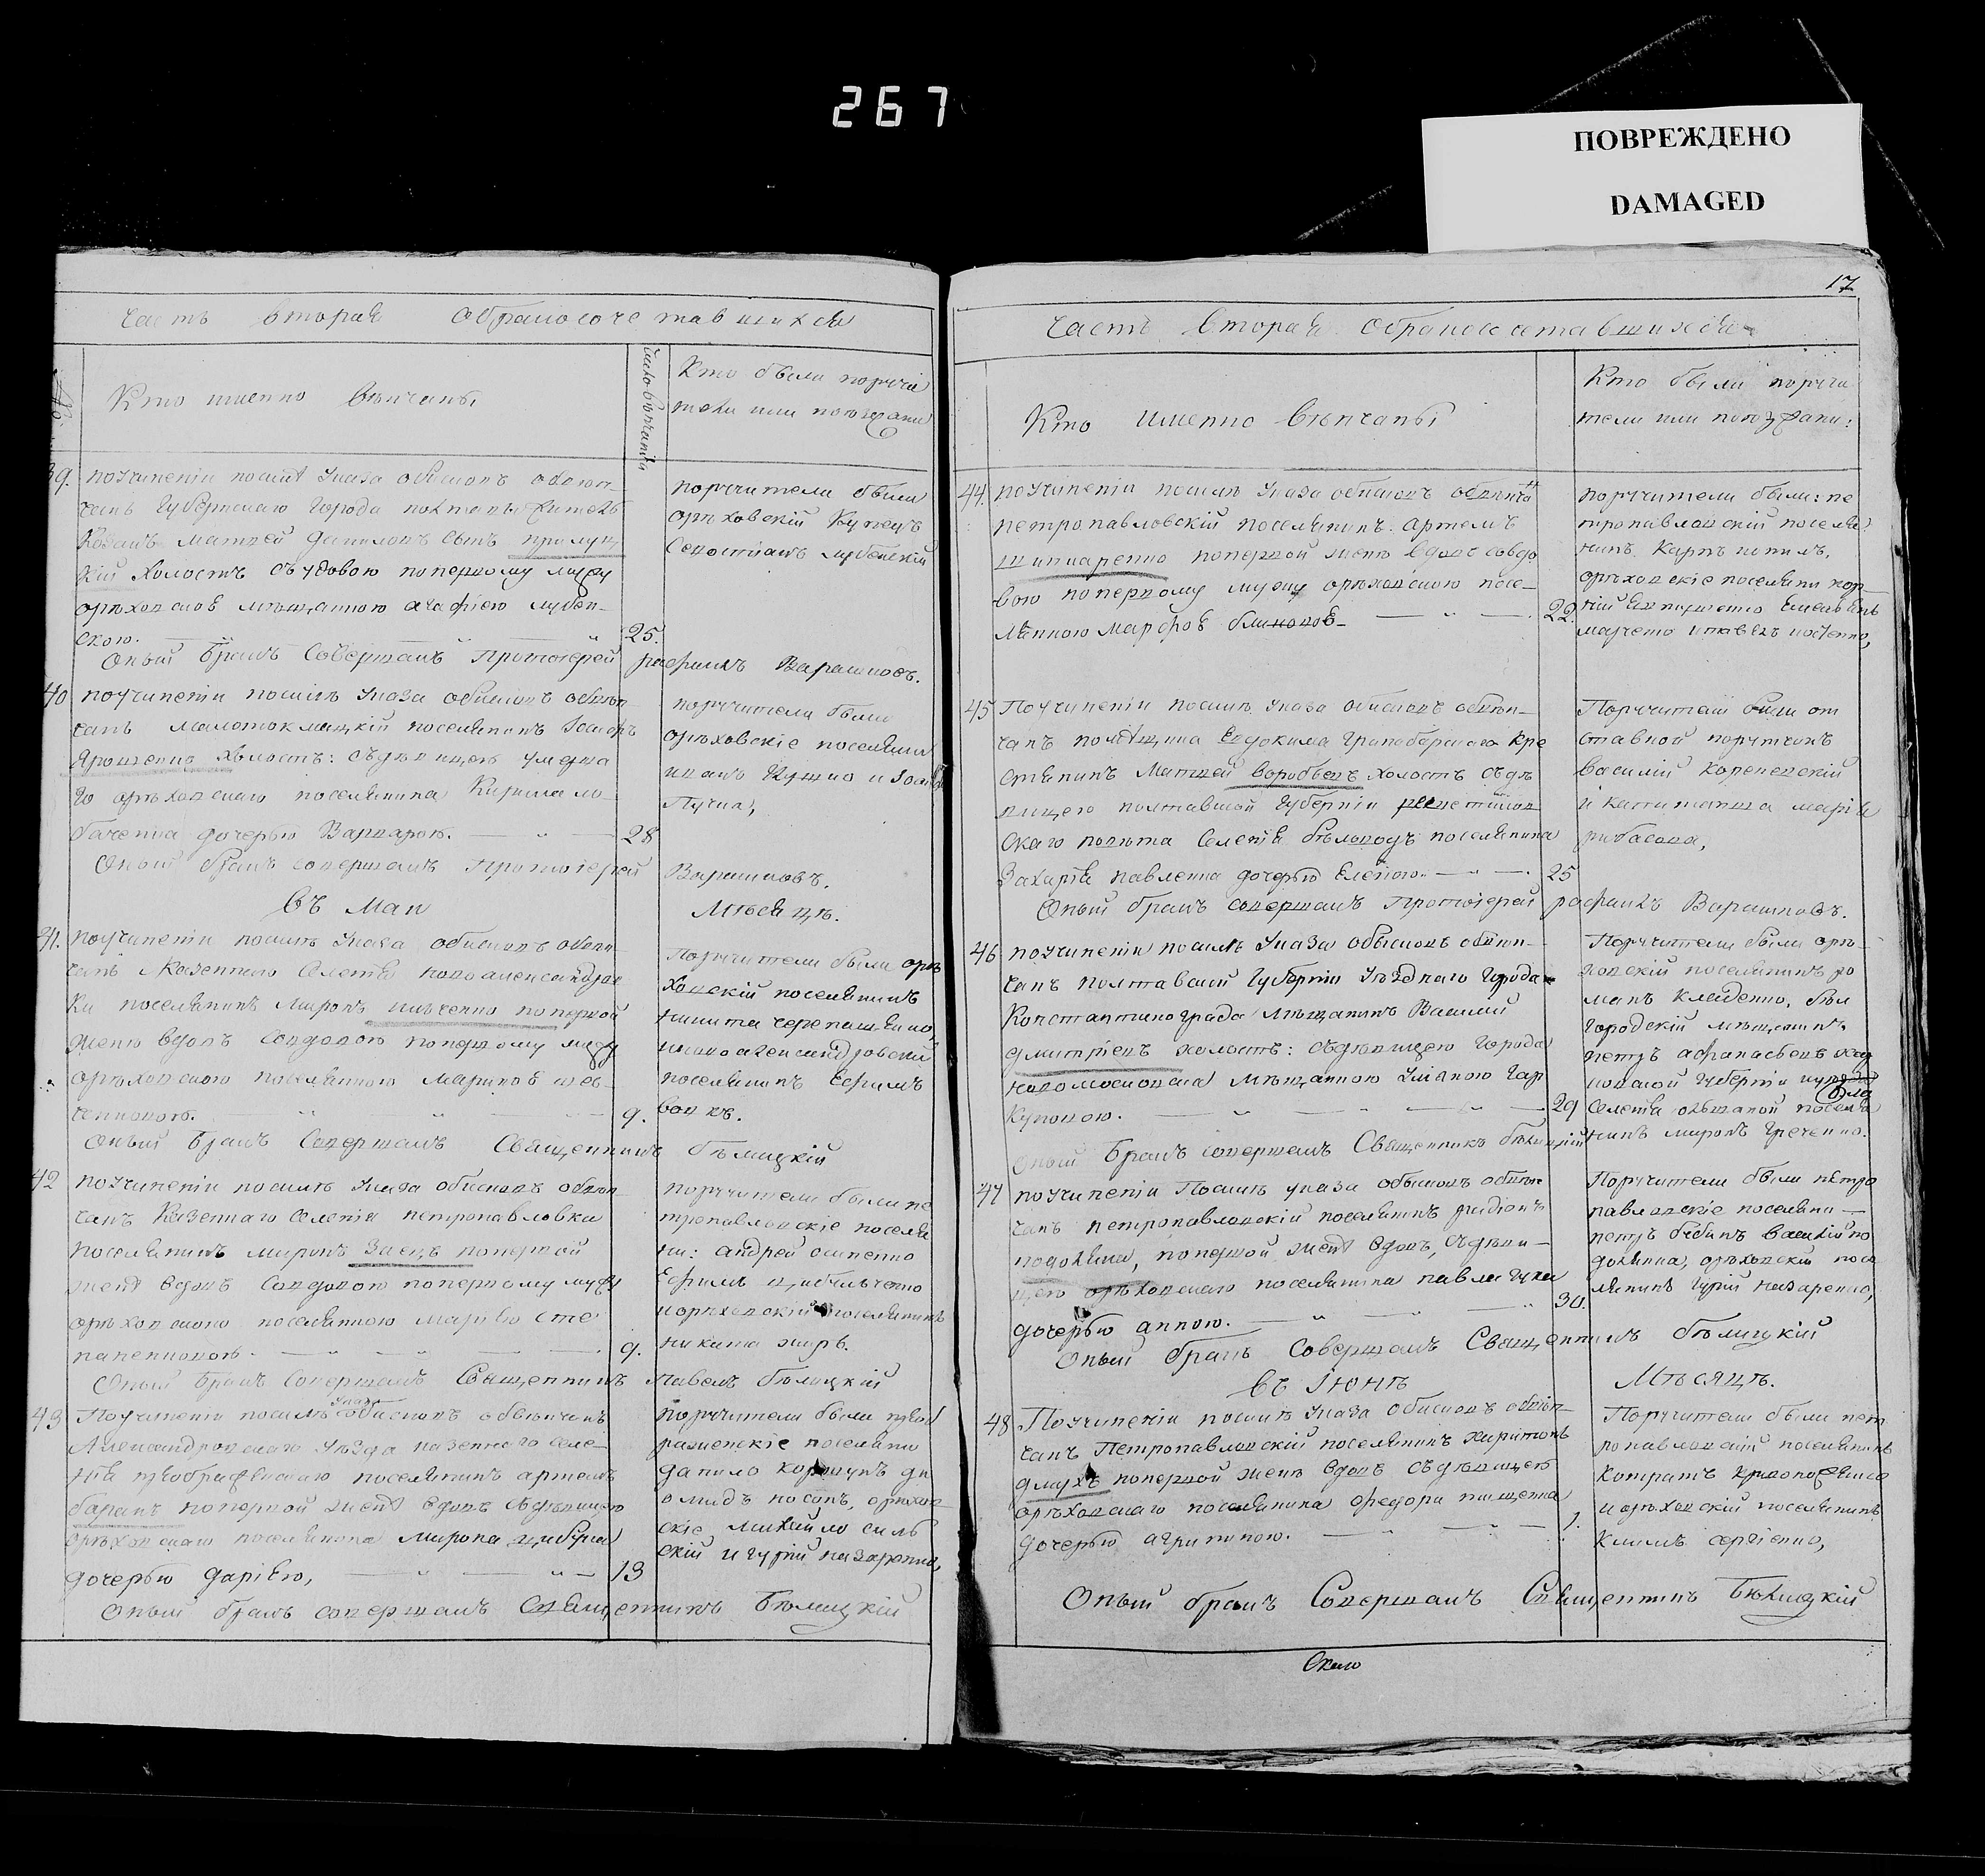 267
ПОВРЕЖДЕНО
DAMAGED
Часть вторая обракосочетавшихся
№
Кто именно вѣнчаны
число вѣнчанiя
Кто были поручи
тели или поезжани
39. поучиненiи посилѣ указа обысковъ обвѣн-
чанъ Губернскаго города полтавы житель
Козакъ Матвей Даниловъ сынъ прилуц
кiй холостъ съ удовою поперьвому мужу
орѣховскоѣ мѣщанкою агафiею лубен-
скою. 25.
поручители были
орѣховскiй Купецъ
Севостiанъ лубенскiй
Оный Бракъ Совершалъ Протоiерей рафаилъ Варашковъ.
40 поучиненiи посилѣ указа обысковъ обвѣн
чанъ малотокмацкiй поселянинъ Iосифъ
Ярошенко холостъ: съдѣвицею умерша
го орѣховскаго поселянина Кирила ло-
баченка дочерью Варварою. 28
поручители были
орѣховскiе поселяни
иванъ Куцко и Iосифъ
Пучка,
Оный бракъ совершалъ Протоiерей Варашковъ.
въ маи Мѣсяцѣ.
41. поучиненiи посилѣ указа обысковъ обвѣн
чанъ Казенного Селенiя новоалександров
ки поселянинъ миронъ поперьвой
женѣ вдовъ совдовою поперьвому мужу
орѣховскою поселянкою мариною шев-
ченковою. 9.
Поручители были орѣ
ховскiй поселянинъ
никита черепащенко,
иновоалександровскiй
поселянинъ Ефимъ
вовкъ.
Оный Бракъ Совершалъ Священникъ Бѣлицкiй
42 поучиненiи посилѣ указа обысковъ обвѣн
чанъ Казеннаго Селенiя петропавловки
поселянинъ миронъ Заецъ поперьвой
женѣ вдовъ совдовою поперьвому мужу
орѣховскою поселянкою марiею сте
паненковою. 9.
поручители были пе
тропавловскiе поселя
ни: андрей осипенко
Ефимъ цибульченко
иорѣховскiй поселянинъ
никита жиръ.
Оный Бракъ Совершалъ Священникъ Павелъ Бѣлицкiй
43 Поучиненiи посилѣ указа обысковъ обвѣнчанъ
Александровскаго уѣзда казенного селе-
нiя преображенскаго поселянинъ артемъ
баранъ поперьвой женѣ вдовъ съдѣвицею
орѣховскаго поселянина мирона цибулки
дочерью дарiею, 13
поручители были преоб
раженскiе поселяни
данило коршунъ ди
омидъ носонъ, орѣхов
скiе михайло силь
скiй и гурiй назаренко,
Оный бракъ совершалъ Священникъ Бѣлицкiй
17
Часть вторая обракосочетавшихся
Кто именно вѣнчаны
Кто были поручи
тели или поезжани:
44. поучиненiи посилѣ указа обысковъ обвѣнчанъ
петропавловскiй поселянинъ артемъ
шипкаренко поперьвой женѣ вдовъ совдо
вою поперьвому мужу орѣховскою посе-
лянкою марфоѣ 22.
поручители были: пе
тропавловскiй поселя
нинъ Карпъ
орѣховскiе поселяни
45 Поучиненiи посилѣ указа обысковъ обвѣн-
чанъ помѣщика Евдокима Гранобарскаго кре
стянинъ Матвей Воробьевъ холостъ съдѣ
вицею полтавской губернiи решетилов
скаго повѣта Селенiя бѣловодъ поселянина
Захарiя павленка дочерью Еленою. 25
Поручители были от
ставной порутчикъ
Василiй Кореневскiй
и капитанша марiя
рибасова,
Оный бракъ совершалъ Протоiерей рафаилъ Варашковъ.
46 поучиненiи посилѣ указа обысковъ обвѣн-
чанъ полтавской губернiи уѣзднаго города
Константинограда мѣщанинъ Василий
дмитрiевъ холостъ: съдѣвицею города
новомосковска мѣщанкою улiяною гар
куновою. 29
Поручители были орѣ-
ховскiй поселянинъ ро
манъ клименко, бѣл
городскiй мѣщанинъ
петръ афанасьевъ хар
ковской губернiи
Селенiя олшаной поселя
нинъ миронъ гречко.
Оный Бракъ совершалъ Священникъ бѣлицкiй
47 поучиненiи Посилѣ указа обысковъ обвѣн
чанъ петропавловскiй поселянинъ
подоляка, поперьвой женѣ вдовъ, съдѣви-
цею орѣховскаго поселянина павла гука
дочерью анною. 30.
Поручители были петро
павловскiе поселяни
петръ бабикъ василiй по
доляка, орѣховскiй посе
лянинъ гурiй назаренко,
Оный бракъ Совершалъ Священникъ бѣлицкiй
въ Iюнѣ Мѣсяцѣ.
48 Поучиненiи посилѣ указа обысковъ обвѣн-
чанъ Петропавловскiй поселянинъ харитонъ
поперьвой женѣ вдовъ съдѣвицею
орѣховскаго поселянина федора пищенка
дочерью агрипиною. 1.
Поручители были пет
ропавловскiй поселянинъ
Кондратъ кривоножка
иорѣховскiй поселянинъ
климъ сергiенко,
Оный бракъ Совершалъ Священникъ Бѣлицкiй